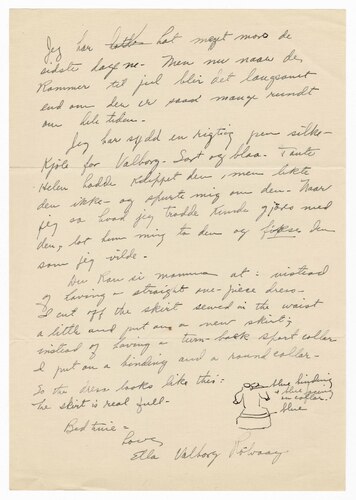 Jeg har hat meget moro de
sidste dagene. Men nu naar de
kommer til jul blir det langsomt
end om der er saad mange rundt
om hele tiden.
Jeg har sydd en rigtig pen silke-
kjole for Valborg. Sort og blaa. Tante
Helen hadde klippet den, men likte
den ikke og spurte mig om den. Naar
jeg sa hvad jeg trodde kunde gjøres med
den, lot hun mig ta den og fikse den
som jeg vilde.
Du kan si mamma at: instead
of having a straight one-piece dress-
I cut off the skirt sewed in the waist
a little and put on a new skirt;
instead of having a turn-back sport collar
I put on a binding and a round collar-
So the dress looks like this:
The skirt is real full-
blue binding
blue
in collar.
blue
Bed time -
Love,
Ella Valborg Rölvaag